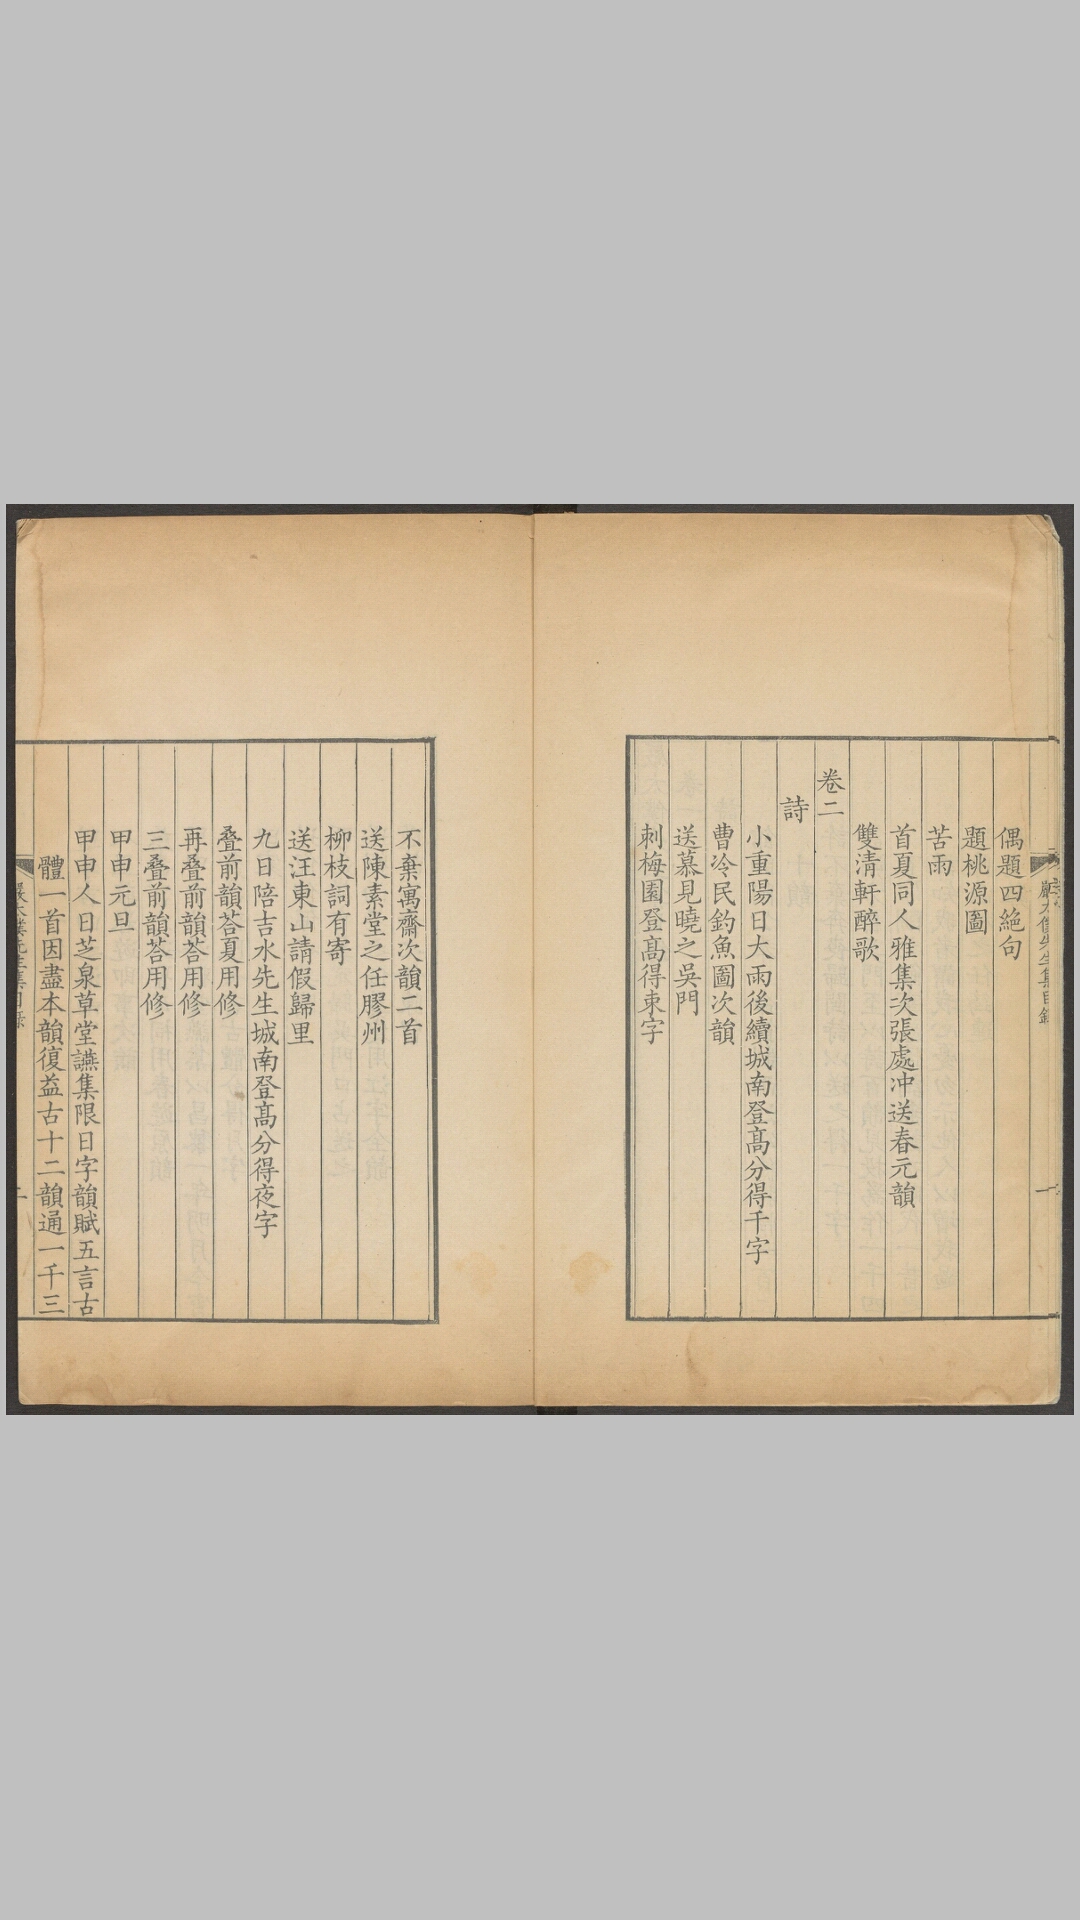 偶題四絕句
題桃源圖
苦雨
首夏同人雅集次張處冲送春元韻
雙清軒醉歌
卷二
詩
小重陽日大雨後續城南登高分得千字
曹冷民釣魚圖次韻
送慕見曉之吳門
刺梅園登高得東字
不棄寓齋次韻二首
送陳素堂之任膠州
柳枝詞有寄
送汪東山請假歸里
九日陪吉水先生城南登高分得夜字
叠前韻荅夏用修
再叠前韻荅用修
三叠前韻荅用修
甲申元旦
甲申人日芝泉草堂讌集限日字韻賦五言古
體一首因盡本韻復益古十二韻通一千三